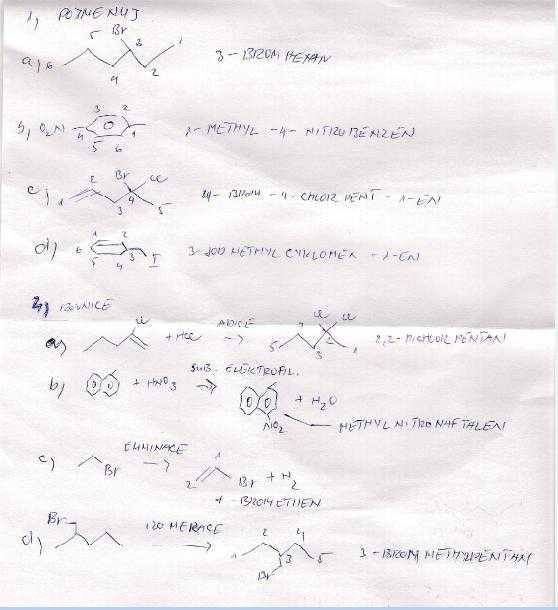 1, POJMENUJ
Br
5 3 1
a) 6 4 2 3-BROMHEXAN
3 2
b, O2N 4 1 1-METHYL-4-NITROBENZEN
5 6
Br Cl
c) 1 2 3 4 5 4-BROM-4-CHLOR PENT-1-EN
1 2
d) 6 3 3-JOD METHYL CYKLOHEX-1-EN
5 4 I
2, ROVNICE
Cl ADICE Cl Cl
a) + HCl → 5 4 3 2 1 2,2-DICHLOR PENTAN
SUB. ELEKTROFIL.
b) + HNO3 → + H2O
NO2 METHYL NITRONAFTALEN
c) ELIMINACE 1
Br → 2 Br + H2
1-BROMETHEN
Br IZOMERACE 2 4
d) → 1 3 5 3-BROM METHYLPENTAN
Br